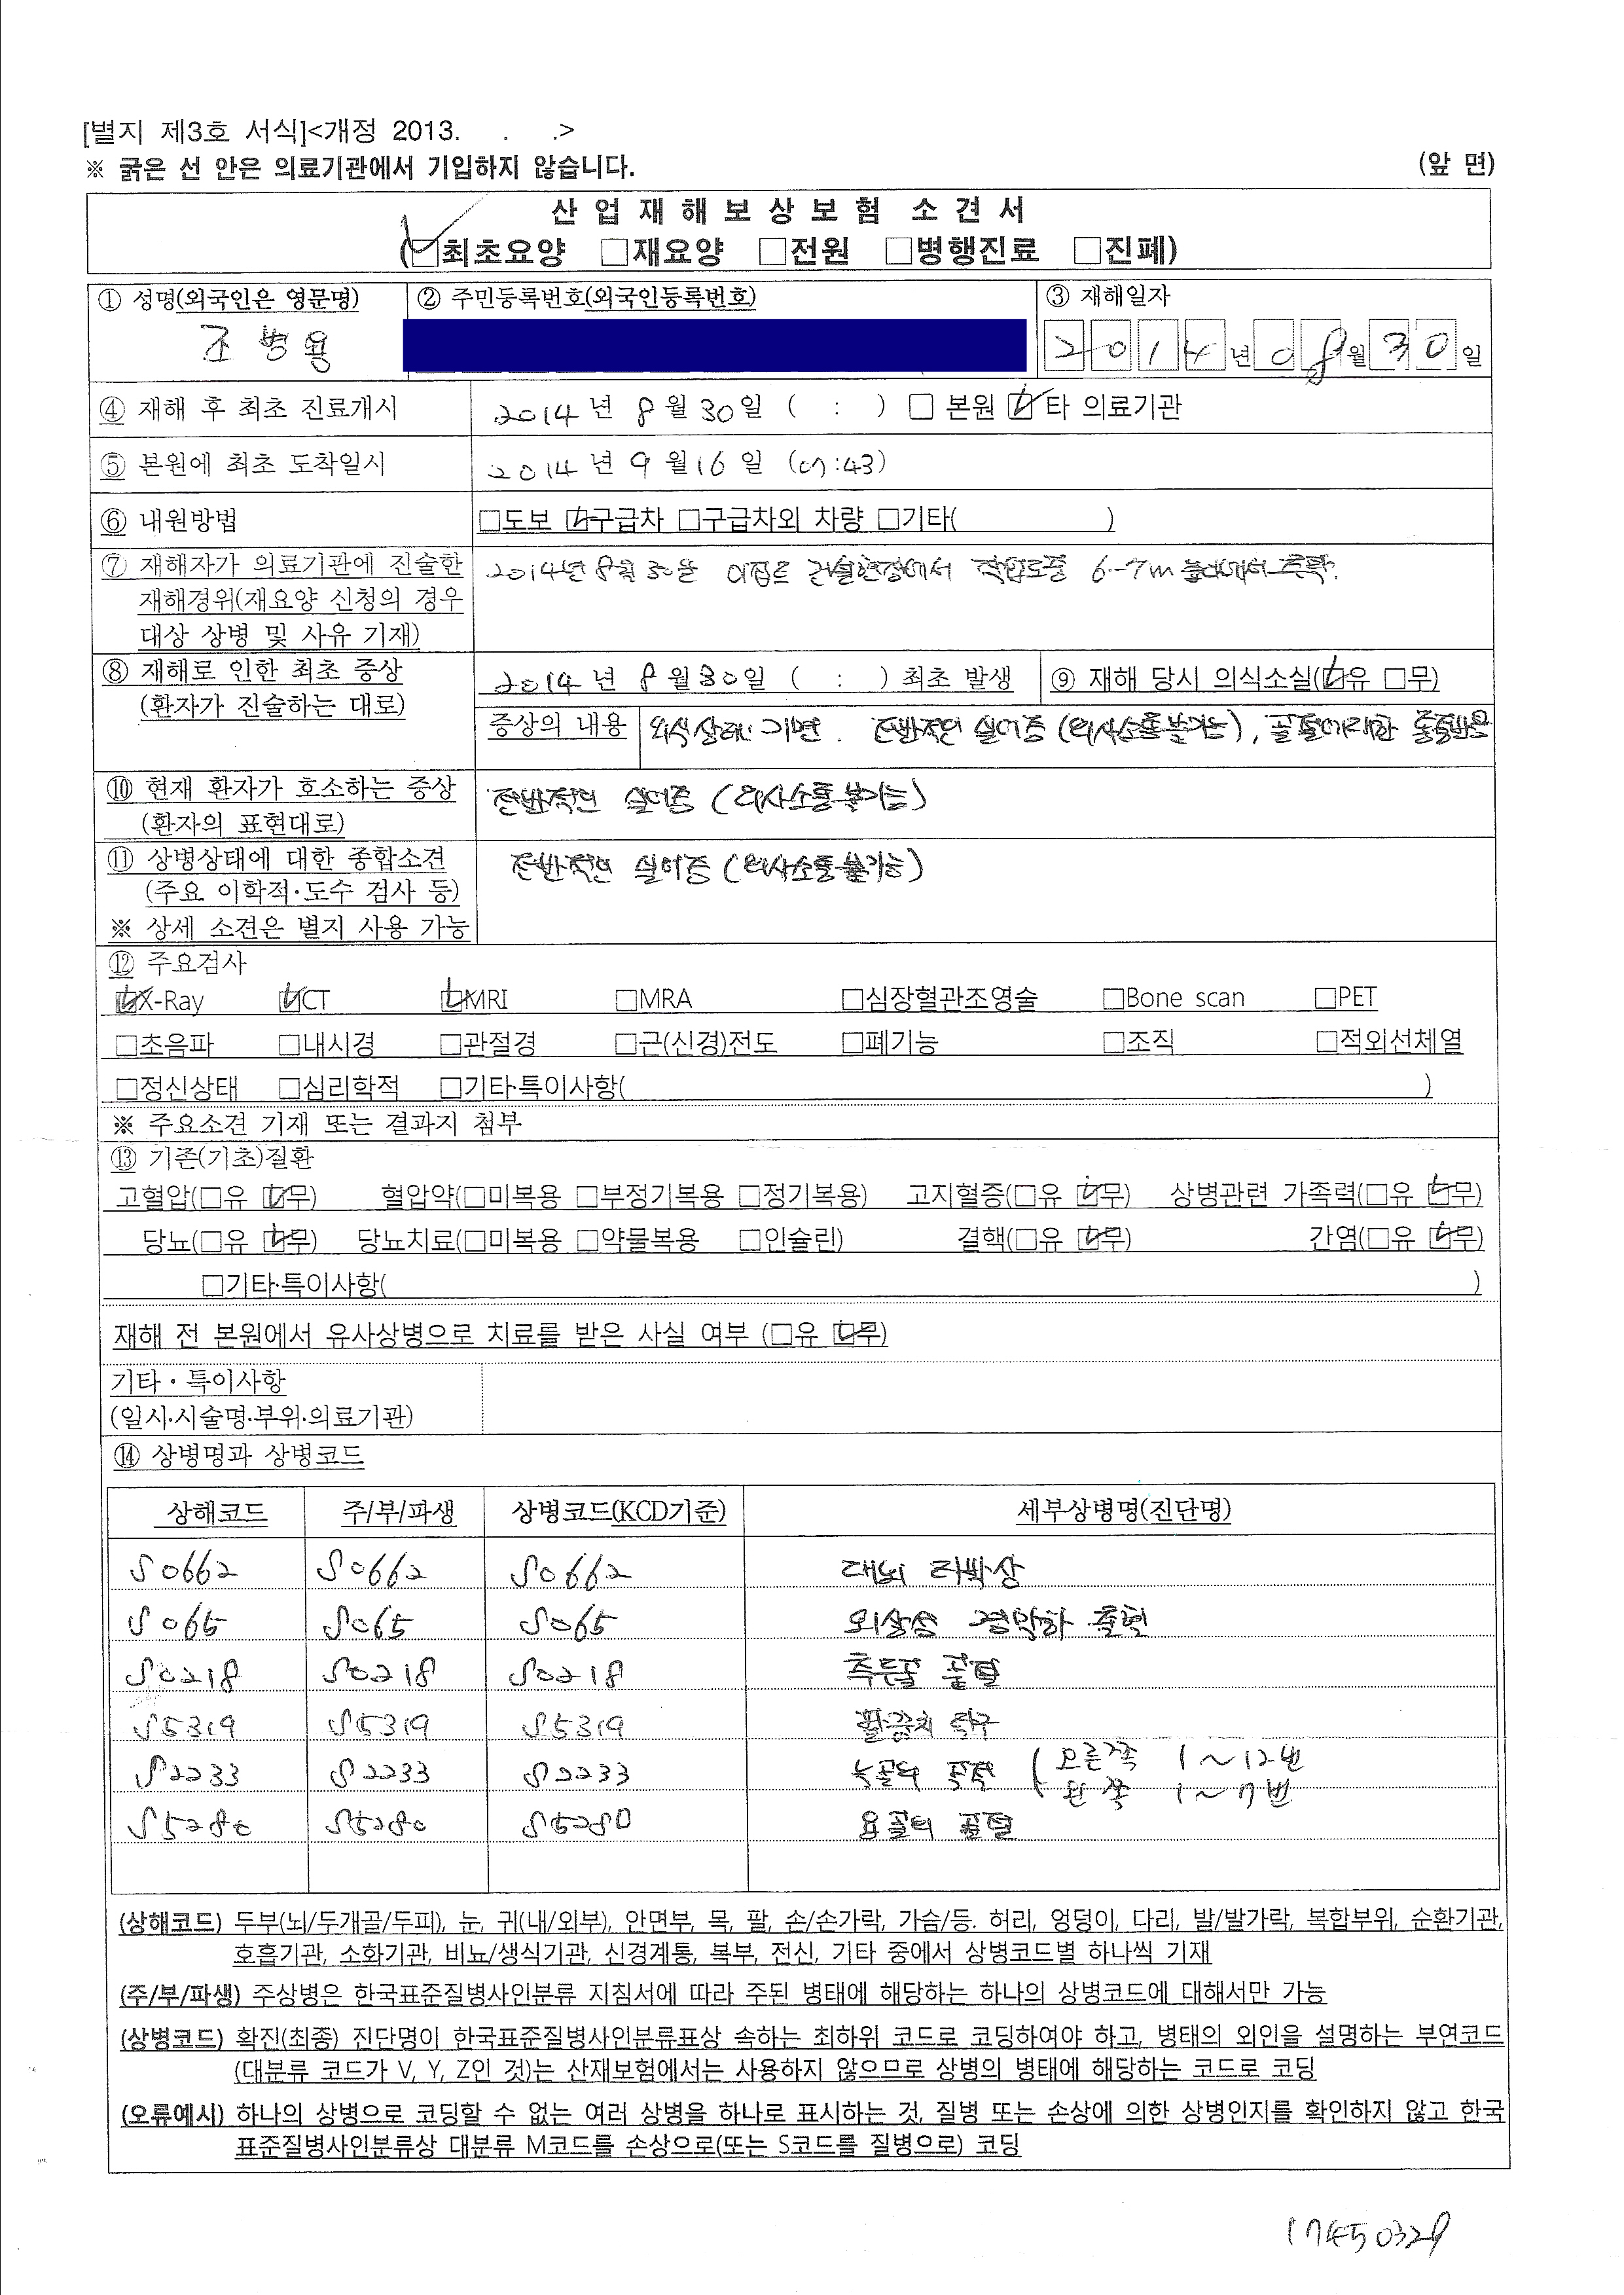 [별지 제3호 서식]<개정 2013.   .   .>
※ 굵은 선 안은 의료기관에서 기입하지 않습니다. (앞 면)
산 업 재 해 보 상 보 험 소 견 서
(☑최초요양 □재요양 □전원 □병행진료 □진폐)
① 성명(외국인은 영문명) ② 주민등록번호(외국인등록번호) ③ 재해일자
조병용 2014년 08월 30일
④ 재해 후 최초 진료개시 2014년 8월 30일 ( : ) □ 본원 ☑ 타 의료기관
⑤ 본원에 최초 도착일시 2014년 9월 16일 (07:43)
⑥ 내원방법 □도보 ☑구급차 □구급차외 차량 □기타( )
⑦ 재해자가 의료기관에 진술한 2014년 8월 30일 건설현장에서 작업도중 6-7m 높이에서 추락.
재해경위(재요양 신청의 경우
대상 상병 및 사유 기재)
⑧ 재해로 인한 최초 증상 2014년 8월 30일 ( : ) 최초 발생 ⑨ 재해 당시 의식소실(☑유 □무)
(환자가 진술하는 대로) 증상의 내용 의식상태: 기면. 전반적인 실어증 (의사소통불가능), 골절에대한 통증반응
⑩ 현재 환자가 호소하는 증상 전반적인 실어증 (의사소통불가능)
(환자의 표현대로)
⑪ 상병상태에 대한 종합소견 전반적인 실어증 (의사소통불가능)
(주요 이학적·도수 검사 등)
※ 상세 소견은 별지 사용 가능
⑫ 주요검사
☑X-Ray ☑CT ☑MRI □MRA □심장혈관조영술 □Bone scan □PET
□초음파 □내시경 □관절경 □근(신경)전도 □폐기능 □조직 □적외선체열
□정신상태 □심리학적 □기타·특이사항( )
※ 주요소견 기재 또는 결과지 첨부
⑬ 기존(기초)질환
고혈압(□유 ☑무) 혈압약(□미복용 □부정기복용 □정기복용) 고지혈증(□유 ☑무) 상병관련 가족력(□유 ☑무)
당뇨(□유 ☑무) 당뇨치료(□미복용 □약물복용 □인슐린) 결핵(□유 ☑무) 간염(□유 ☑무)
□기타·특이사항( )
재해 전 본원에서 유사상병으로 치료를 받은 사실 여부 (□유 ☑무)
기타 · 특이사항
(일시·시술명·부위·의료기관)
⑭ 상병명과 상병코드
상해코드 주/부/파생 상병코드(KCD기준) 세부상병명(진단명)
S0662 S0662 S0662 대뇌 타박상
S065 S065 S065 외상성 경막하 출혈
S0218 S0218 S0218 측두골 골절
S5319 S5319 S5319 팔꿈치 탈구
S2233 S2233 S2233 늑골의 골절 (오른쪽 1~12번
왼쪽 1~7번
S5280 S5280 S5280 용골의 골절
(상해코드) 두부(뇌/두개골/두피), 눈, 귀(내/외부), 안면부, 목, 팔, 손/손가락, 가슴/등. 허리, 엉덩이, 다리, 발/발가락, 복합부위, 순환기관,
호흡기관, 소화기관, 비뇨/생식기관, 신경계통, 복부, 전신, 기타 중에서 상병코드별 하나씩 기재
(주/부/파생) 주상병은 한국표준질병사인분류 지침서에 따라 주된 병태에 해당하는 하나의 상병코드에 대해서만 가능
(상병코드) 확진(최종) 진단명이 한국표준질병사인분류표상 속하는 최하위 코드로 코딩하여야 하고, 병태의 외인을 설명하는 부연코드
(대분류 코드가 V, Y, Z인 것)는 산재보험에서는 사용하지 않으므로 상병의 병태에 해당하는 코드로 코딩
(오류예시) 하나의 상병으로 코딩할 수 없는 여러 상병을 하나로 표시하는 것, 질병 또는 손상에 의한 상병인지를 확인하지 않고 한국
표준질병사인분류상 대분류 M코드를 손상으로(또는 S코드를 질병으로) 코딩
17450329